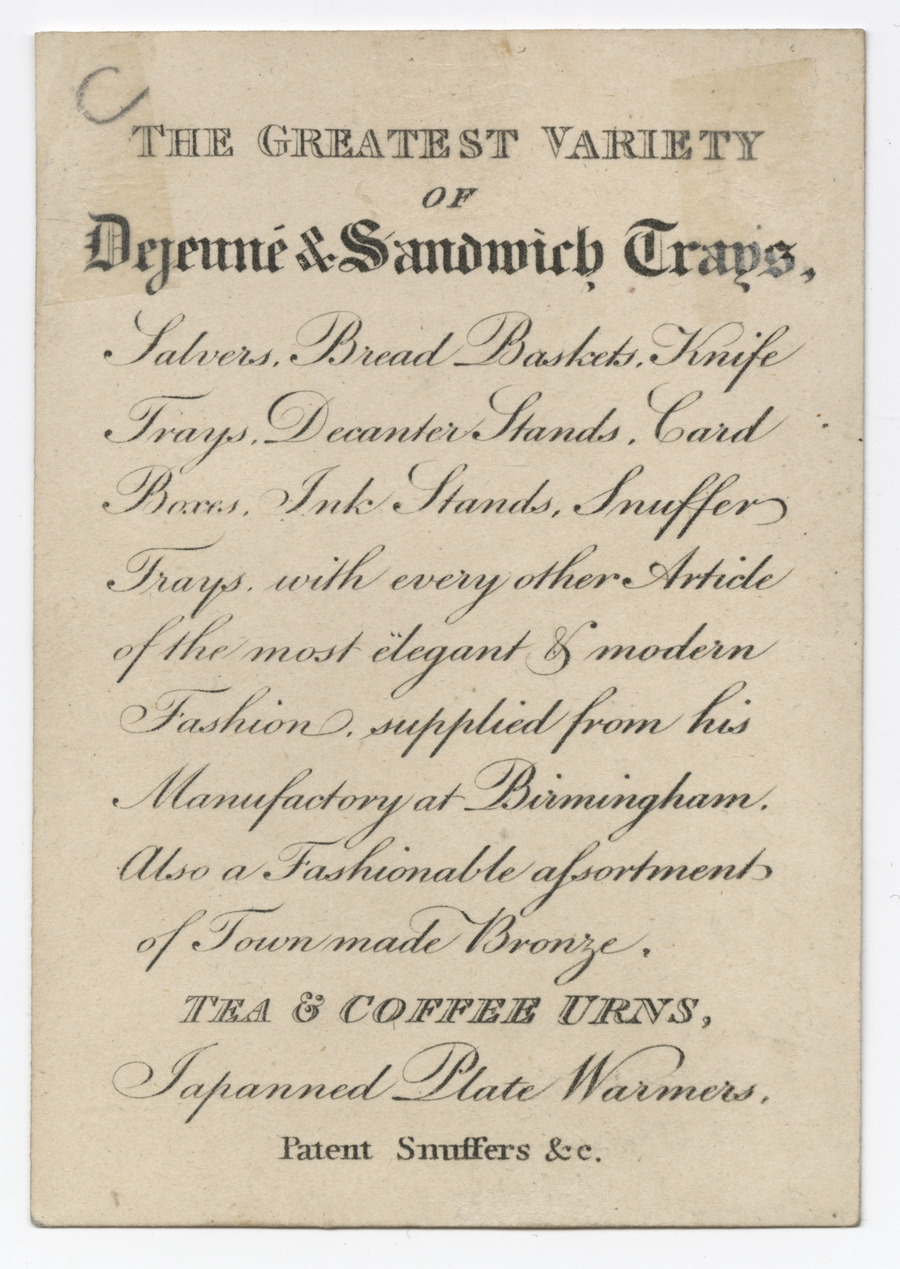 THE GREATEST VARIETY
OF
Dejeunné & Sandwich Trays,
Salvers, Bread Baskets, Knife
Trays, Decanter Stands, Card
Boxes, Ink Stands, Snuffer
Trays, with every other Article
of the most ëlegant & modern
Fashion, supplied from his
Manufactory at Birmingham.
Also a Fashionable aſsortment
of Town made Bronze,
TEA & COFFEE URNS,
Japanned Plate Warmers,
Patent Snuffers &c.